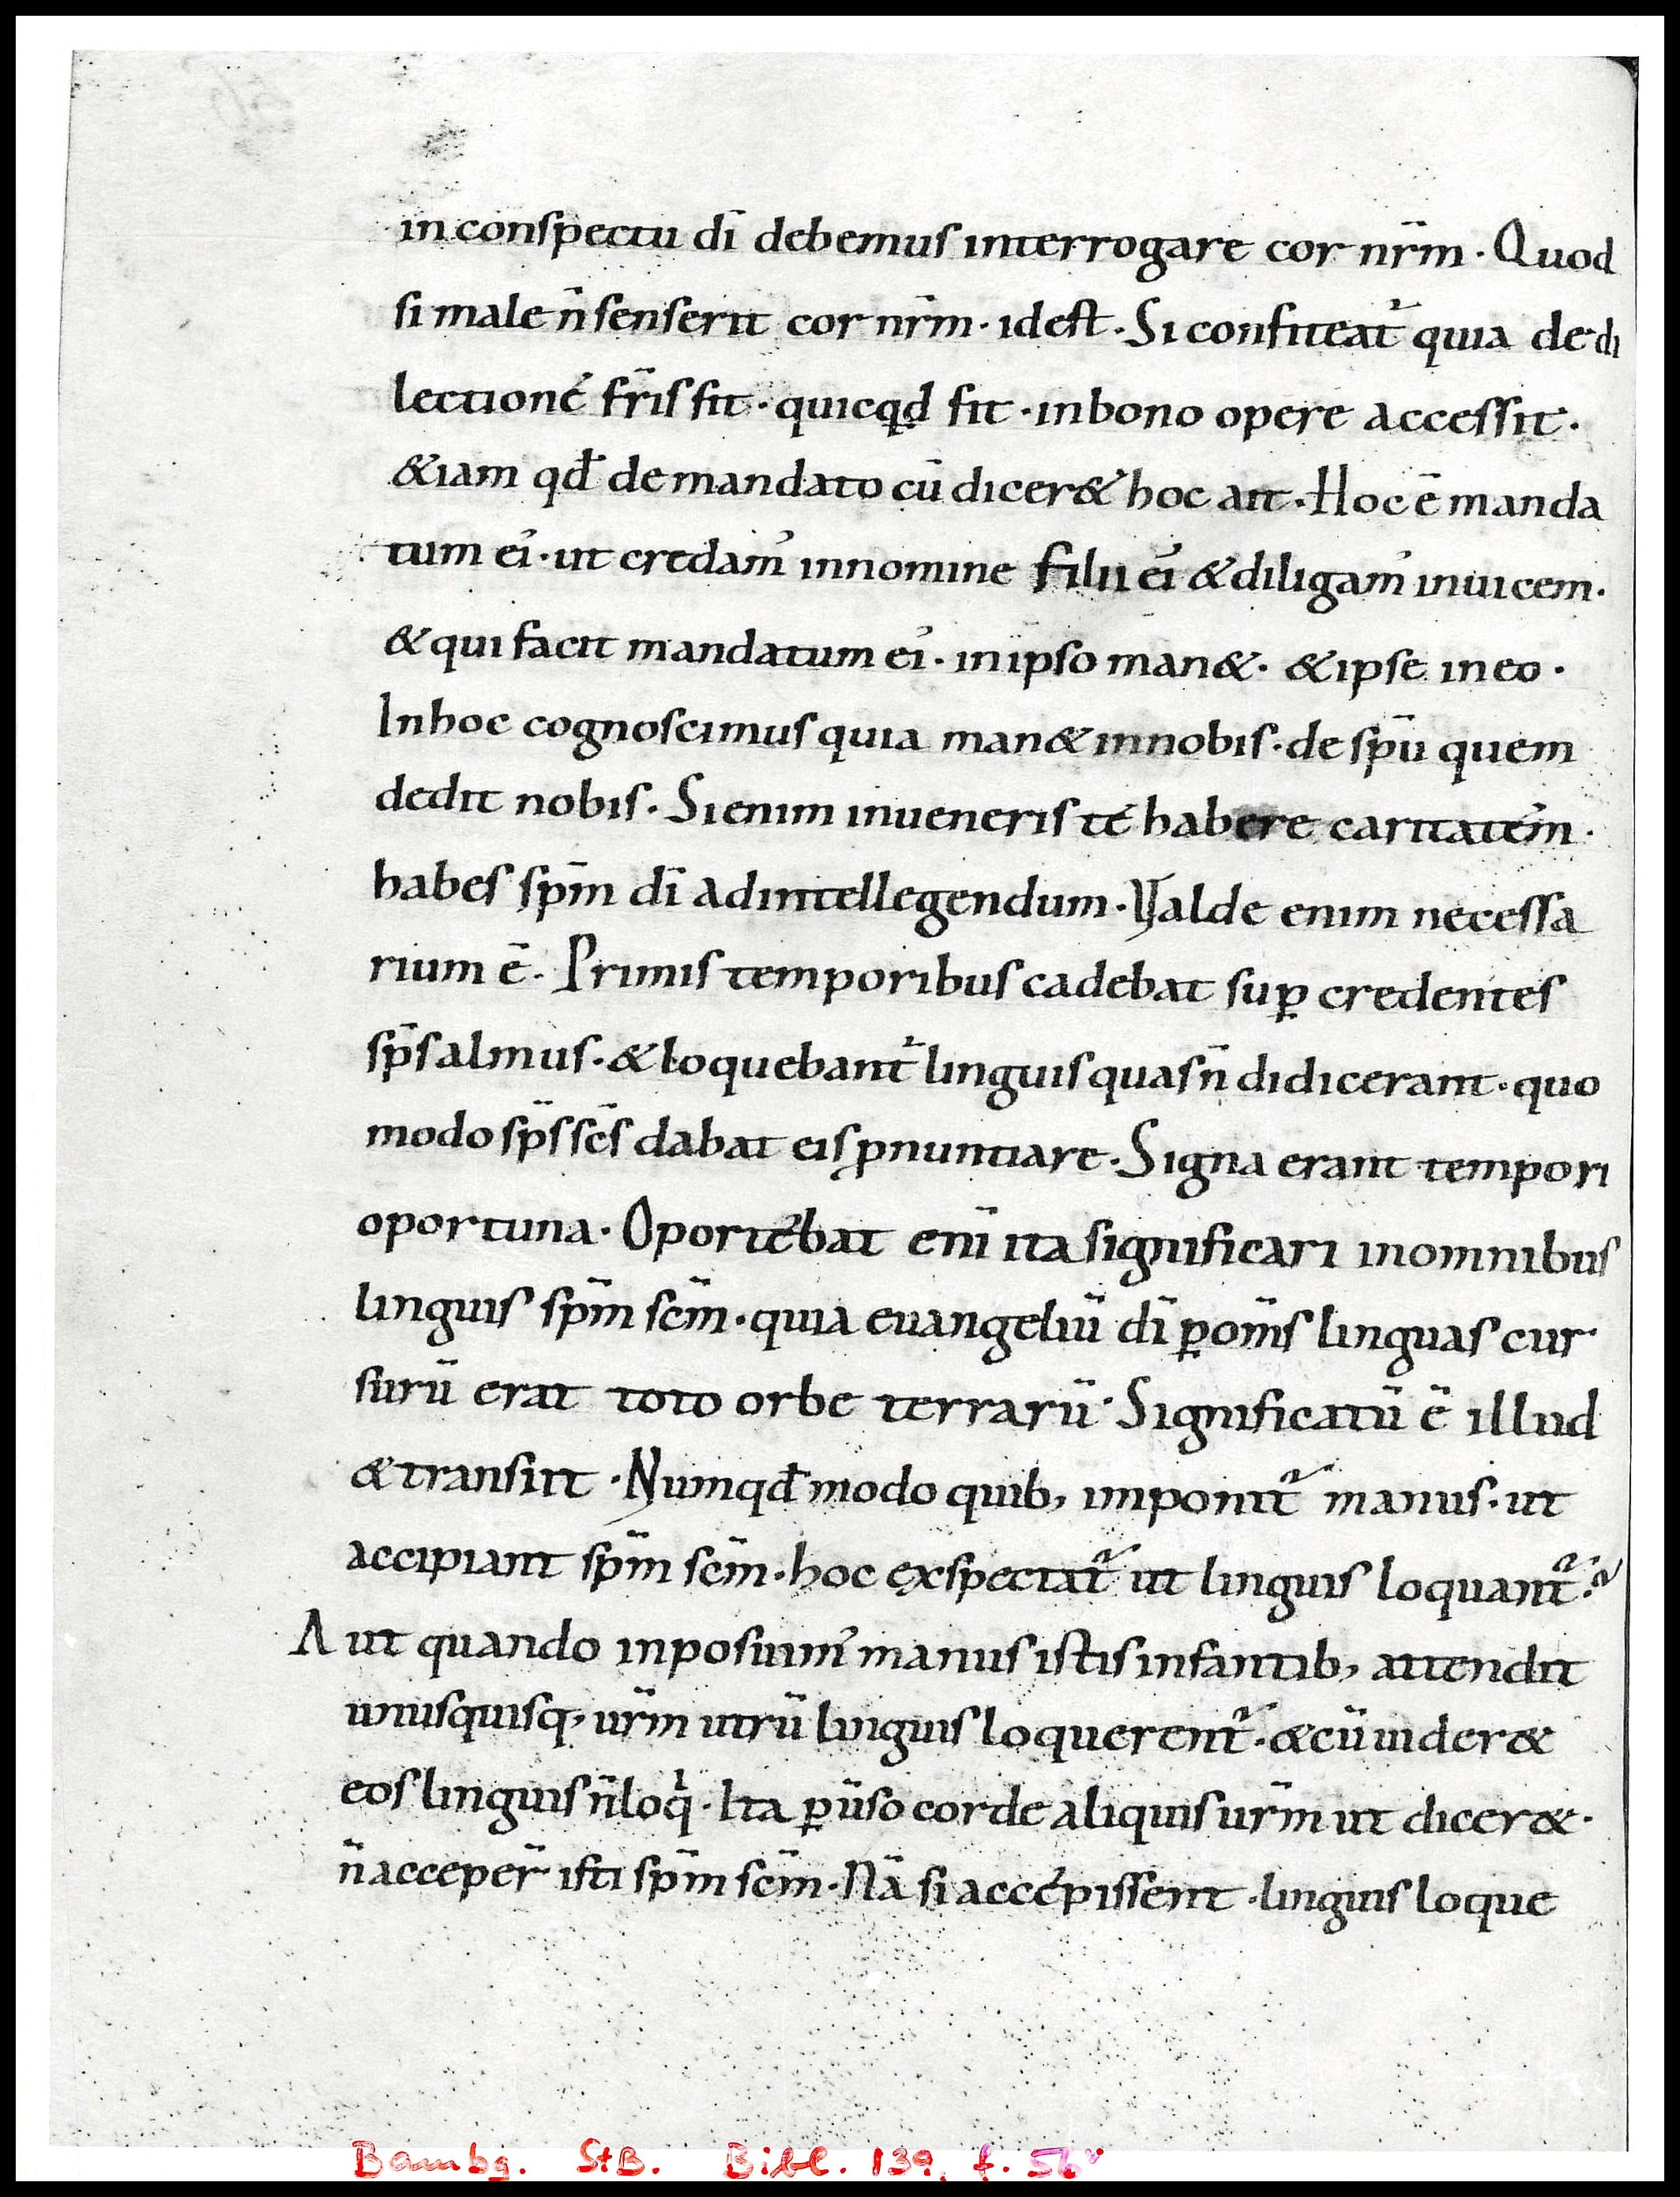 in conspectu dī debemus interrogare cor nr̄m · Quod
si male n̄ senserit cor nr̄m · id est · Si confiteat᷑ quia de di
lectione fr̄is fit · quicqd fit · in bono opere accessit ·
&iam qđ de mandato cū dicer& hoc ait · Hoc ē manda
tum ei᾽ · ut credam᾽ in nomine filii ei᾽ & diligam᾽ inuicem ·
& qui facit mandatum ei᾽ · in ipso man& · & ipse in eo ·
In hoc cognoscimus quia man& in nobis · de sp̄u quem
dedit nobis · Si enim inueneris te habere caritatem ·
habes sp̄m dī ad intellegendum · Valde enim necessa
rium ē · Primis temporibus cadebat suꝑ credentes
sp̄s almus · & loquebant᷑ linguis quas n̄ didicerant · quo
modo sp̄s sc̄s dabat eis ꝓnuntiare · Signa erant tempori
oportuna · Oportebat enī ita significari in omnibus
linguis sp̄m sc̄m · quia euangeliū dī ꝑ om̄s linguas cur
surū erat toto orbe terrarū · Significatū ē illud
& transiit · Numqđ modo quib, imponit᷑ manus · ut
accipiant sp̄m sc̄m · hoc exspectat᷑ ut linguis loquant᷑ ·?
Aut quando inposuim᾽ manus istis infantib, attendit
unusquisq, ur̄m utrū linguis loquerent᷑ · & cū uider&
eos linguis n̄ loqͥ · Ita ꝑuūso corde aliquis ur̄m ut dicer& ·
n̄ acceper̄ isti sp̄m sc̄m · Nā si accepissent · linguis loque
Bambg. StB. Bibl. 139, f. 56v